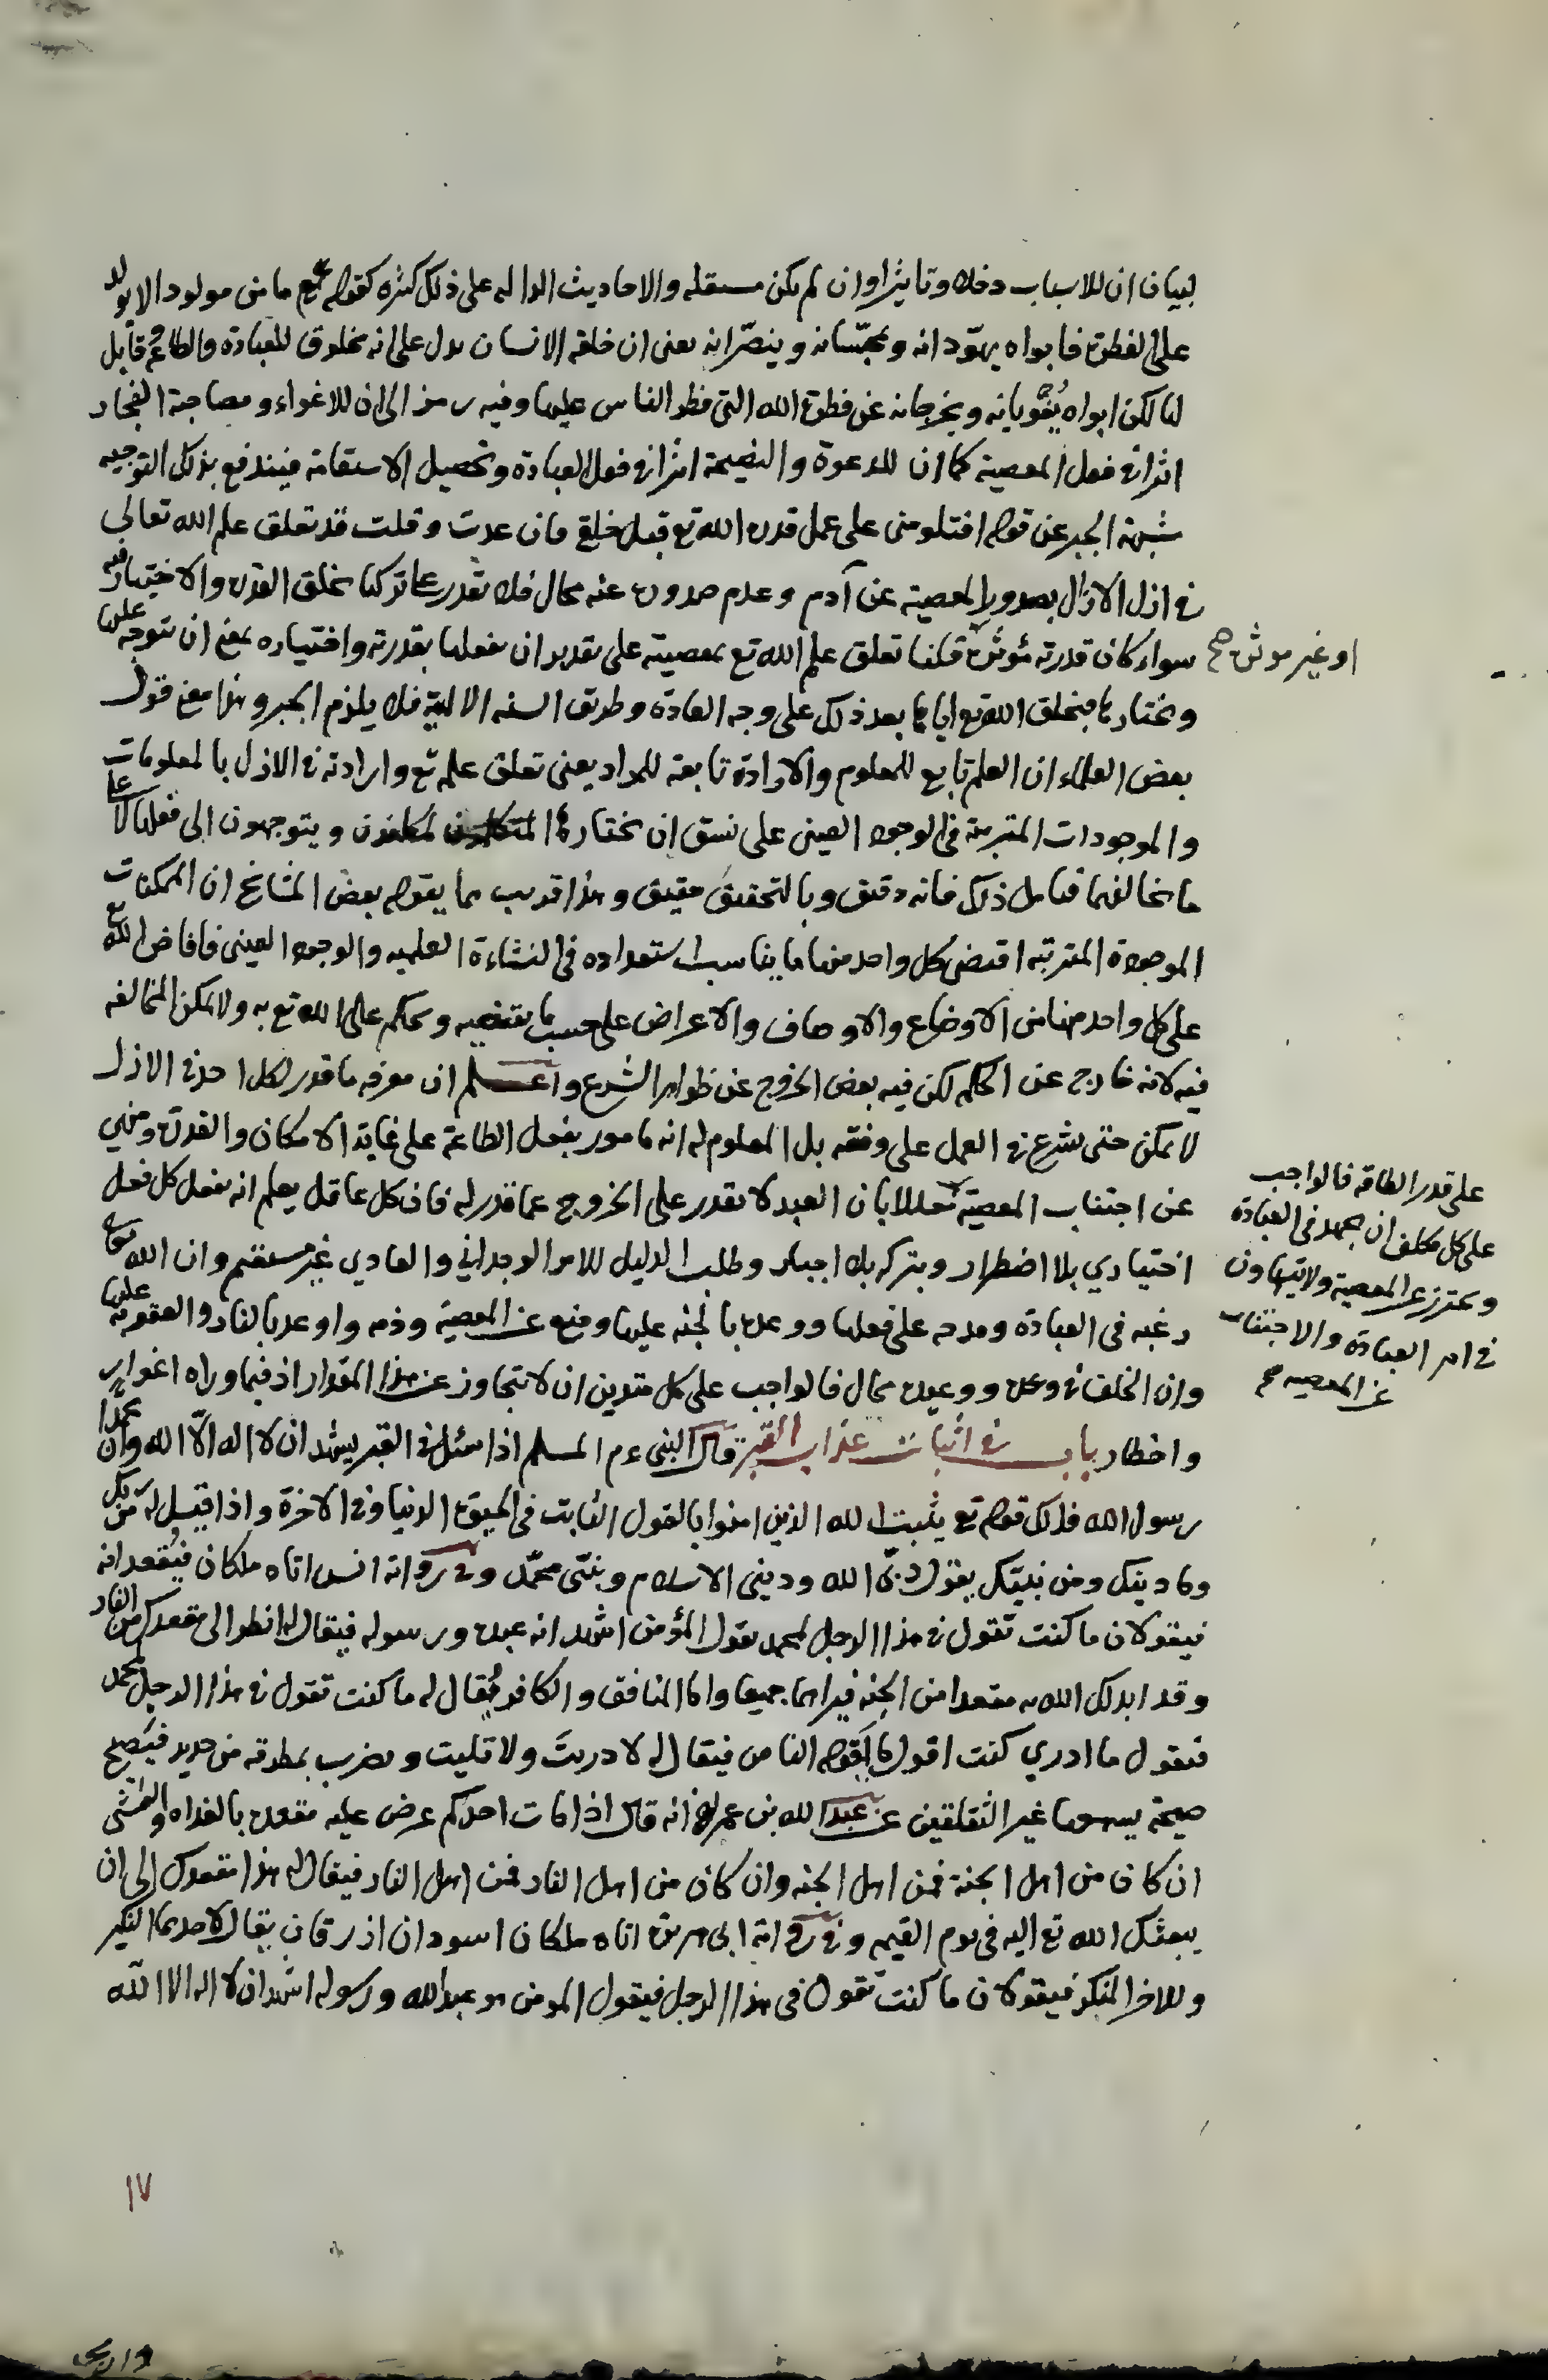 لبيان ان للاسباب دخلا وتاثيرا وان لم يكن مستقله والاحاديث الداله على ذلك كثيره كقوله عم ما من مولود الا يولد
على الفطرة فابواه يهوّدانه ويمجّسانه وينصّرانه يعنى ان خلقه الانسان يدل على انه مخلوق للعبادة والطاعة قابل
لها لكن ابواه يُغْويانه ويخرجانه عن فطرة الله التي فطر الناس عليها وفيه رمز الى ان للاغواء ومصاحبة الفجار
اثرا في فعل المعصية كما ان للدعوة والنصيحة اثرا في فعل العبادة وتحصيل الاستقامة فيندفع بذلك التوجيه
شبهة الجبر عن قوله افتلومنى على عمل قدره الله تع قبل خلقى فان عدت وقلت قد تعلق علم الله تعالى
في ازل الازال بصدور المعصية عن آدم وعدم صدوره عنه محال فلا يقدر على تركها بخلق القدرة والاختيار فيه
سواء كان قدرته مؤثرة قلنا تعلق علم الله تع بمعصيته على تقدير ان يفعلها بقدرته واختياره بمعنى ان يتوجه عليها
او غير موثرة صح
ويختارها فيخلق الله تع اياها بعد ذلك على وجه العادة وطريق السنه الالهية فلا يلزم الجبر وهذا معنى قول
بعض العلماء ان العلم تابع للمعلوم والارادة تابعة للمراد يعنى تعلق علمه تع وارادته في الازل بالمعلومات
والموجودات المترتبة في الوجود العينى على نسق ان يختارها المكلفون ويتوجهون الى فعلها لا على
ما يخالفها فتامل ذلك فانه دقيق وبالتحقيق حقيق وهذا قريب مما يقوله بعض المشايخ ان الممكنات
الموجودة المترتبه اقتضى كل واحد منها ما يناسب استعداده في النشاءة العلميه والوجود العينى فافاض الله تع
على كل واحد منها من الاوضاع والاوصاف والاعراض على حسب ما يقتضيه ويحكم على الله تع به ولا يمكن المخالفه
فيه لانه خارج عن الحكمه لكن فيه بعض الخروج عن ظواهر الشرع واعلم ان معرفه ما قدر لكل احد في الازل
لا يمكن حتى يشرع في العمل على وفقه بل المعلوم له انه مامور بفعل الطاعة على غاية الامكان والقدرة ومنهى
عن اجتناب المعصية معللا بان العبد لا يقدر على الخروج عما قدر له فان كل عاقل يعلم انه يفعل كل فعل
على قدر الطاقه فالواجب
على كل مكلف ان يجهد في العبادة
ويحترز عن المعصية ولا يتهاون
في امر العبادة والاجتناب
عن المعصيه صح
اختياري بلا اضطرار ويتركه بلا اجبار وطلب الدليل للامر الوجداني والعادي غير مستقيم وان الله تعالى
رغبه في العبادة ومدحه على فعلها ووعده بالجنه عليها ومنع عن المعصية وذمه واوعد بالنار والعقوبه عليها
وان الخلف في وعده ووعيده محال فالواجب على كل متدين ان لا يتجاوز عن هذا المقدار اذ فيما وراه اغوار
واخطار باب في اثبات عذاب القبر قال النبى ءم المسلم اذا سئل في القبر يشهد ان لا اله الّا الله وان محمدا
رسول الله فذلك قوله تع يثبت الله الذين امنوا بالقول الثابت في الحيوة الدنيا وفي الاخرة واذا قيل له من ربك
وما دينك ومن نبيّك يقول ربّى الله وديني الاسلام ونبيّى محمّد وفي رواية انس اتاه ملكان فيُقعدانه
فيقولان ما كنت تقول في هذا الرجل لمحمد يقول المؤمن اشهد انه عبده ورسوله فيقال له انظر الى مقعدك من النار
وقد ابدلك الله به مقعدا من الجنه فيراهما جميعا واما المنافق والكافر فيُقال له ما كنت تقول في هذا الرجل لمحمد
فيقول ما ادري كنت اقول ما يقوله الناس فيقال له لا دريتَ ولا تليت ويضرب بمطرقة من حديد فيَصيح
صيحة يسمعها غير الثقلين عن عبد الله بن عمر انه قال اذا مات احدكم عرض عليه مقعده بالغداه والعشى
ان كان من اهل الجنة فمن اهل الجنه وان كان من اهل النار فمن اهل النار فيقال له هذا مقعدك الى ان
يبعثك الله تع اليه في يوم القيمه وفي رواية ابى هريرة اتاه ملكان اسودان ازرقان يقال لاحدهما النكير
وللاخر المنكر فيقولان ما كنت تقول في هذا الرجل فيقول المومن هو عبد الله ورسوله اشهد ان لا اله الا الله
١٧